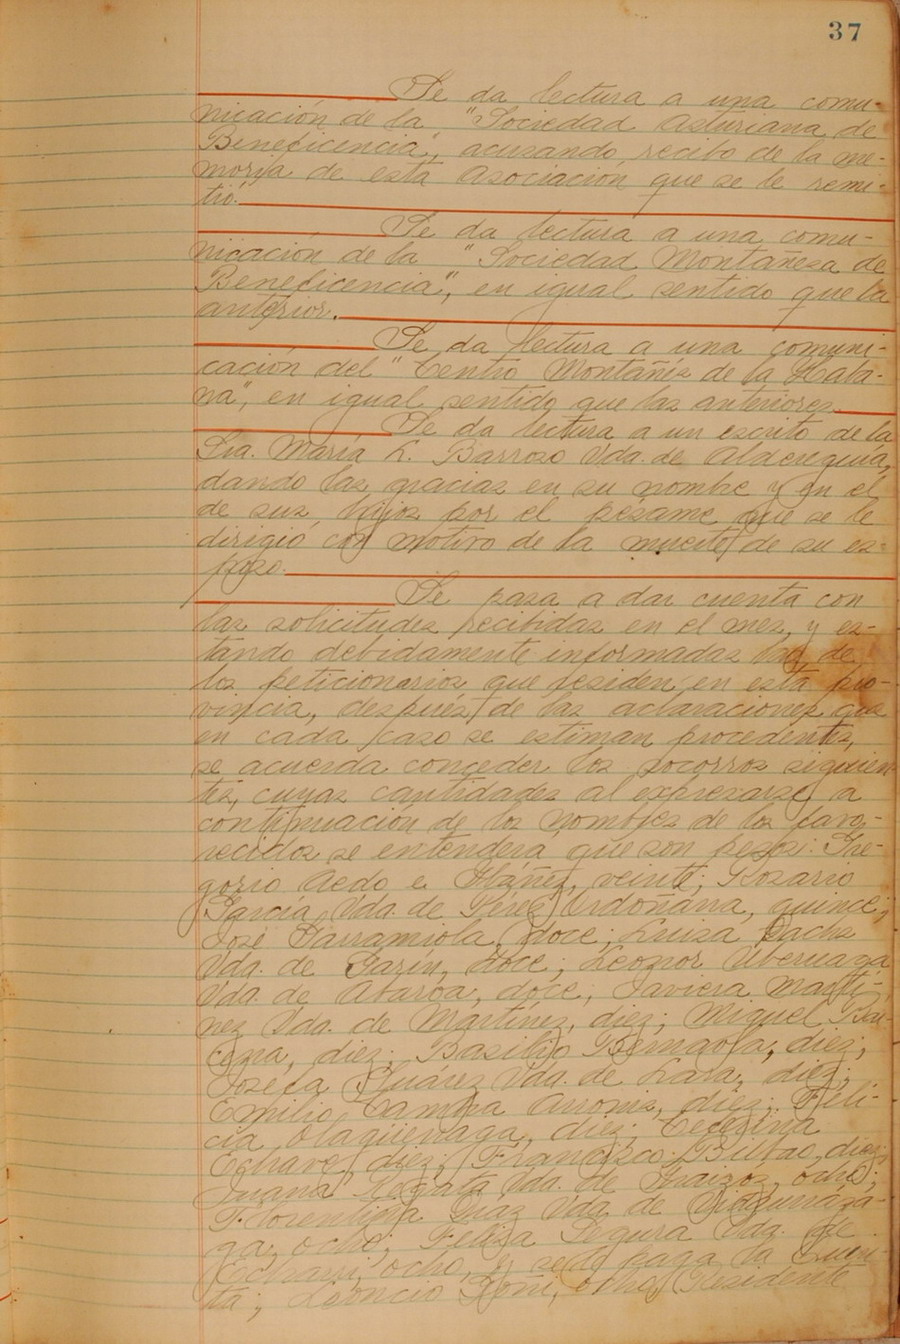 37
Se da lectura a una comu-
nicación de la "Sociedad Asturiana de
Beneficencia", acusando recibo de la me-
moria de esta Asociación que se le remi-
tió.
Se da lectura a una comu-
nicación de la "Sociedad Montañesa de
Beneficencia", en igual sentido que la
anterior.
Se da lectura a una comuni-
cación del "Centro Montañés de la Haba-
na", en igual sentido que las anteriores.
Se da lectura a un escrito de la
Sra. María L. Barroso Vda. de Aldereguía,
dando las gracias en su nombre y en el
de sus hijos por el pésame que se le
dirigió con motivo de la muerte de su es-
poso.
Se pasa a dar cuenta con
las solicitudes recibidas en el mes, y es-
tando debidamente informadas las de
los peticionarios que residen en esta pro-
vincia, después de las aclaraciones que
en cada caso se estiman procedentes,
se acuerda conceder los socorros siguien-
tes, cuyas cantidades al expresarse a
continuación de los nombres de los favo-
recidos se entenderá que son pesos: Gre-
gorio Aedo e Ibáñez, veinte; Rosario
García Vda. de Pérez Urdoñana, quince;
José Larramiola, doce; Luisa
Vda. de Garín, doce; Leonor Uberuaga
Vda. de Abaroa, doce; Javiera Martí-
nez Vda. de Martínez, diez; Miguel Bar-
cena, diez; Basilio Bengoa, diez;
Josefa Suárez Vda. de Lara, diez;
Emilio Cambra Arroniz, diez; Feli-
cia Olagüenaga, diez; Ceferina
Echave, diez; Francisco Bilbao, diez;
Juana Vda. de Ibaizoz, ocho;
Florentina Diaz Vda. de
ga, ocho; Felisa Segura Vda. de
Echarri, ocho, y se le paga la Quin-
ta; Leoncio Goñi, ocho, Residente